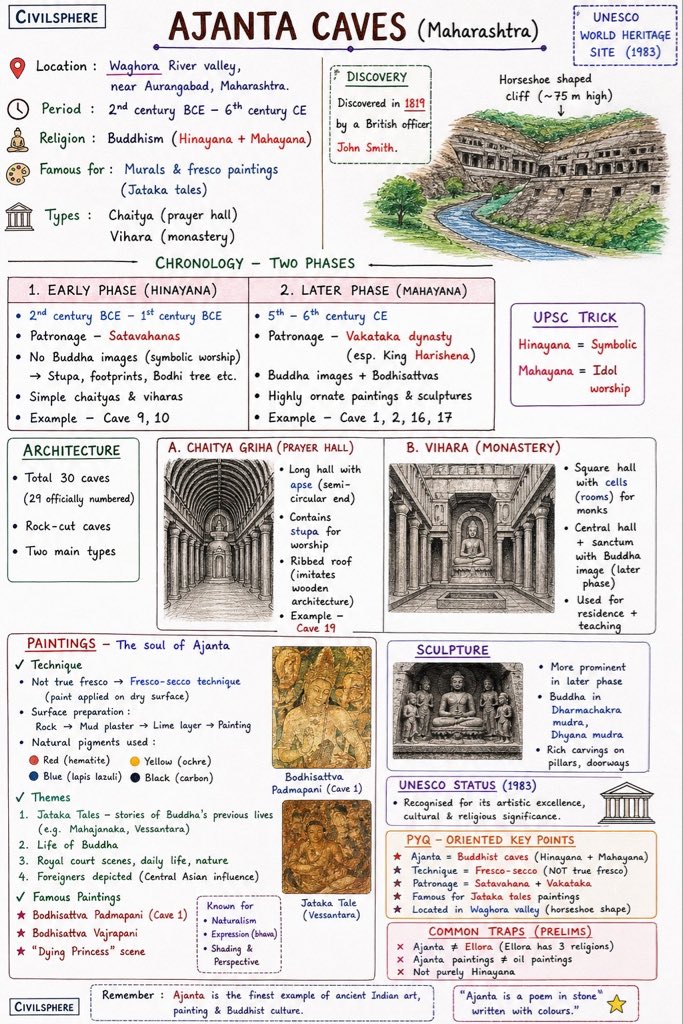 CIVILSPHERE
AJANTA CAVES (Maharashtra)
UNESCO
WORLD HERITAGE
SITE (1983)
Location : Waghora River valley,
near Aurangabad, Maharashtra.
Period : 2nd century BCE – 6th century CE
Religion : Buddhism (Hinayana + Mahayana)
Famous for : Murals & fresco paintings
(Jataka tales)
Types : Chaitya (prayer hall)
Vihara (monastery)
DISCOVERY
Discovered in 1819
by a British officer
John Smith.
Horseshoe shaped
cliff (~75 m high)
CHRONOLOGY – TWO PHASES
1. EARLY PHASE (HINAYANA)
• 2nd century BCE – 1st century BCE
• Patronage – Satavahanas
• No Buddha images (symbolic worship)
→ Stupa, footprints, Bodhi tree etc.
• Simple chaityas & viharas
• Example – Cave 9, 10
2. LATER PHASE (MAHAYANA)
• 5th – 6th century CE
• Patronage – Vakataka dynasty
(esp. King Harishena)
• Buddha images + Bodhisattvas
• Highly ornate paintings & sculptures
• Example – Cave 1, 2, 16, 17
UPSC TRICK
Hinayana = Symbolic
Mahayana = Idol
worship
ARCHITECTURE
• Total 30 caves
(29 officially numbered)
• Rock-cut caves
• Two main types
A. CHAITYA GRIHA (PRAYER HALL)
• Long hall with
apse (semi-
circular end)
• Contains
stupa for
worship
• Ribbed roof
(imitates
wooden
architecture)
• Example –
Cave 19
B. VIHARA (MONASTERY)
• Square hall
with cells
(rooms) for
monks
• Central hall
+ sanctum
with Buddha
image (later
phase)
• Used for
residence +
teaching
PAINTINGS – The soul of Ajanta
✓ Technique
• Not true fresco → Fresco-secco technique
(paint applied on dry surface)
• Surface preparation :
Rock → Mud plaster → Lime layer → Painting
• Natural pigments used :
Red (hematite) Yellow (ochre)
Blue (lapis lazuli) Black (carbon)
✓ Themes
1. Jataka Tales – stories of Buddha's previous lives
(e.g. Mahajanaka, Vessantara)
2. Life of Buddha
3. Royal court scenes, daily life, nature
4. Foreigners depicted (Central Asian influence)
✓ Famous Paintings
★ Bodhisattva Padmapani (Cave 1)
★ Bodhisattva Vajrapani
★ "Dying Princess" scene
Known for
• Naturalism
• Expression (bhava)
• Shading &
Perspective
Bodhisattva
Padmapani (Cave 1)
Jataka Tale
(Vessantara)
SCULPTURE
• More prominent
in later phase
• Buddha in
Dharmachakra
mudra,
Dhyana mudra
• Rich carvings on
pillars, doorways
UNESCO STATUS (1983)
• Recognised for its artistic excellence,
cultural & religious significance.
PYQ – ORIENTED KEY POINTS
★ Ajanta = Buddhist caves (Hinayana + Mahayana)
★ Technique = Fresco-secco (NOT true fresco)
★ Patronage = Satavahana + Vakataka
★ Famous for Jataka tales paintings
★ Located in Waghora valley (horseshoe shape)
COMMON TRAPS (PRELIMS)
× Ajanta ≠ Ellora (Ellora has 3 religions)
× Ajanta paintings ≠ oil paintings
× Not purely Hinayana
CIVILSPHERE
Remember : Ajanta is the finest example of ancient Indian art,
painting & Buddhist culture.
"Ajanta is a poem in stone
written with colours."